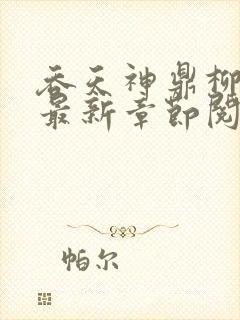 吞天神鼎柳
最新章节阅
帕尔